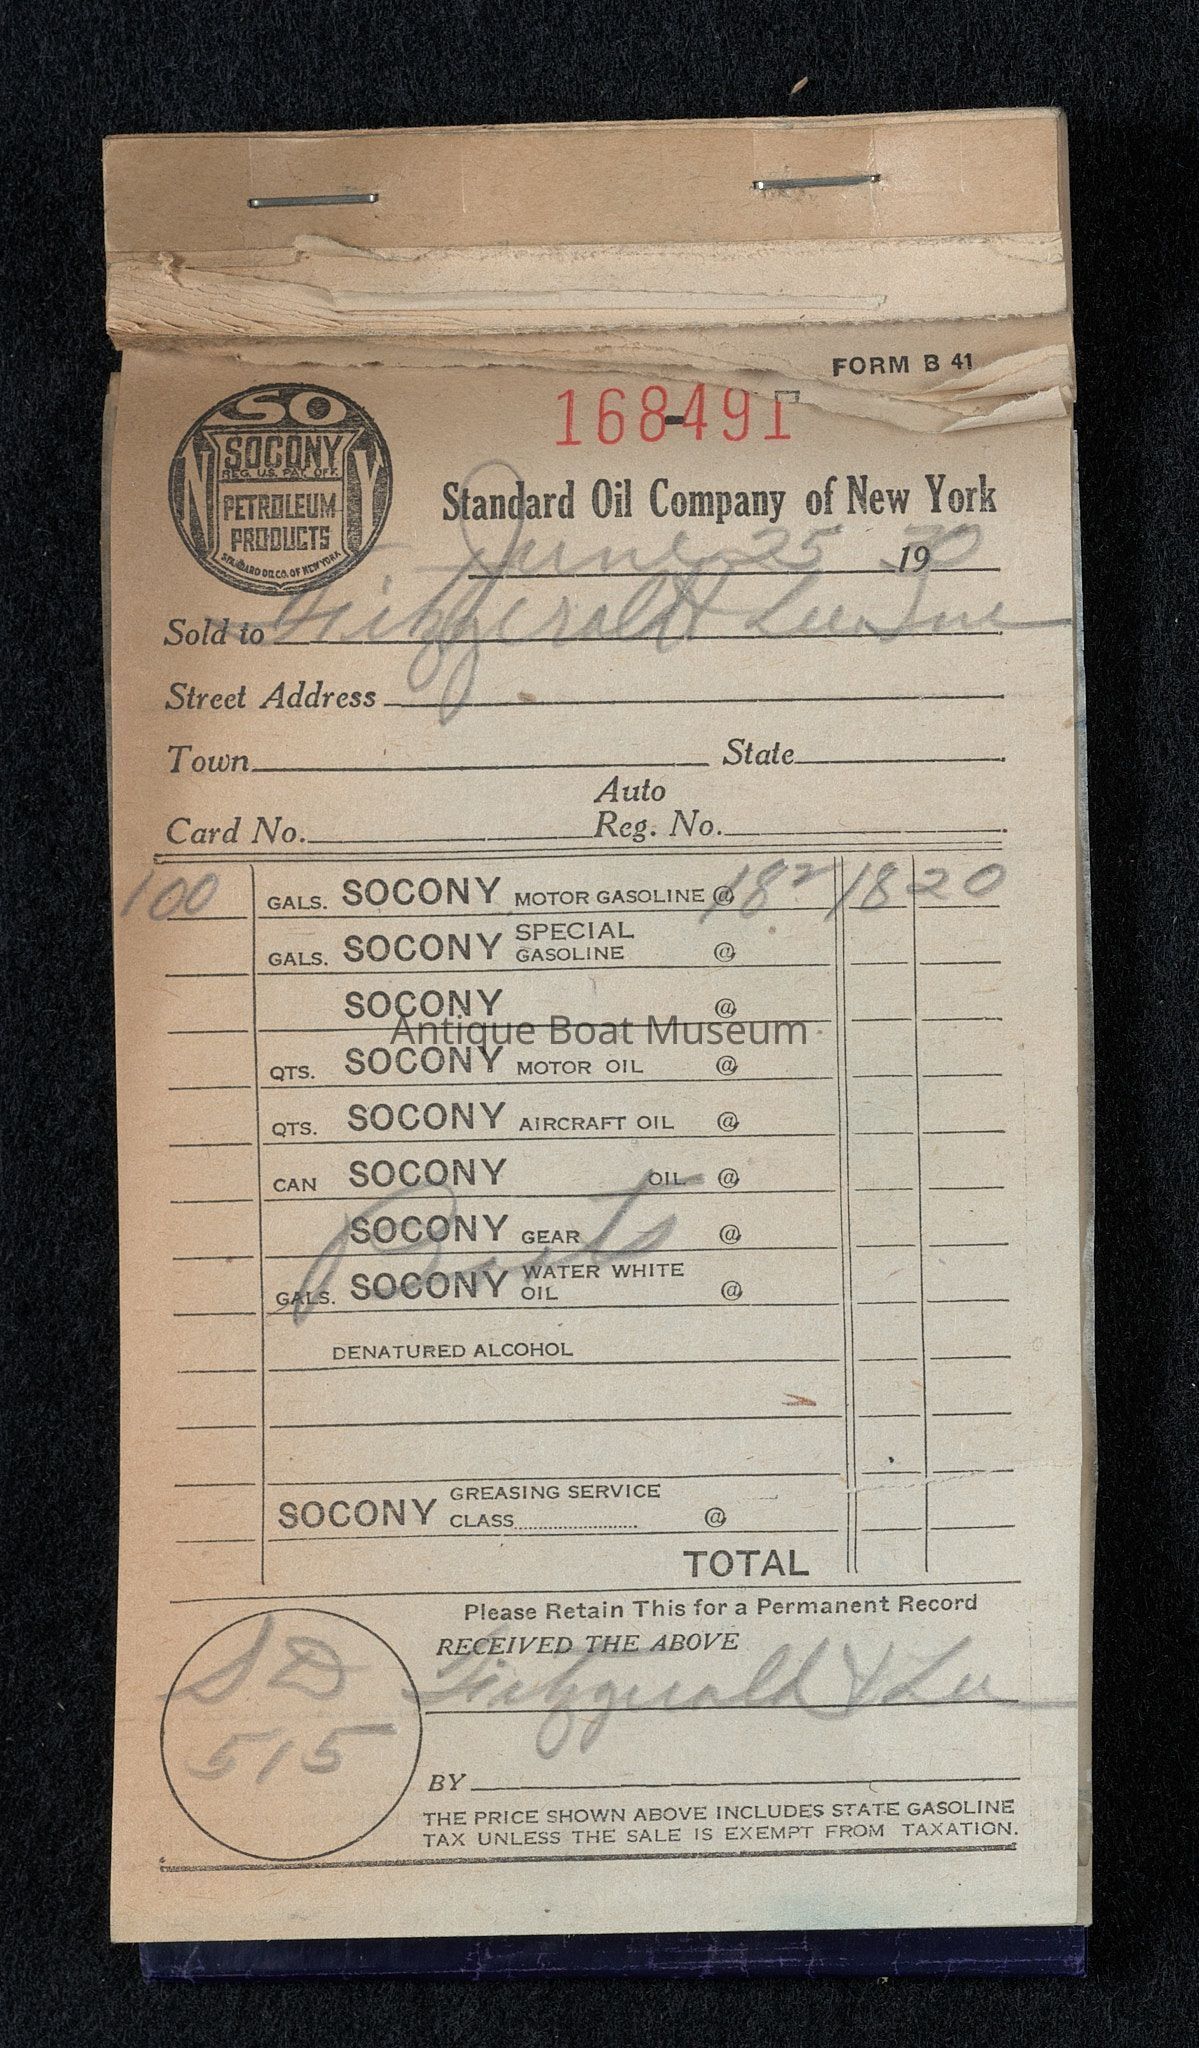 FORM B 41
168491
SO
N SOCONY Y
REG. U.S. PAT. OFF.
PETROLEUM
PRODUCTS
STANDARD OIL CO. OF NEW YORK
Standard Oil Company of New York
June 25 1930
Sold to Fitzgerald & Lee Inc
Street Address
Town State
Auto
Card No. Reg. No.
100 GALS. SOCONY MOTOR GASOLINE @ 18² 18 20
GALS. SOCONY SPECIAL GASOLINE @
SOCONY @
Antique Boat Museum
QTS. SOCONY MOTOR OIL @
QTS. SOCONY AIRCRAFT OIL @
CAN SOCONY OIL @
SOCONY GEAR @
GALS. SOCONY WATER WHITE OIL @
DENATURED ALCOHOL
SOCONY GREASING SERVICE
CLASS @
TOTAL
Please Retain This for a Permanent Record
RECEIVED THE ABOVE
Fitzgerald & Lee
SD
515
BY
THE PRICE SHOWN ABOVE INCLUDES STATE GASOLINE
TAX UNLESS THE SALE IS EXEMPT FROM TAXATION.